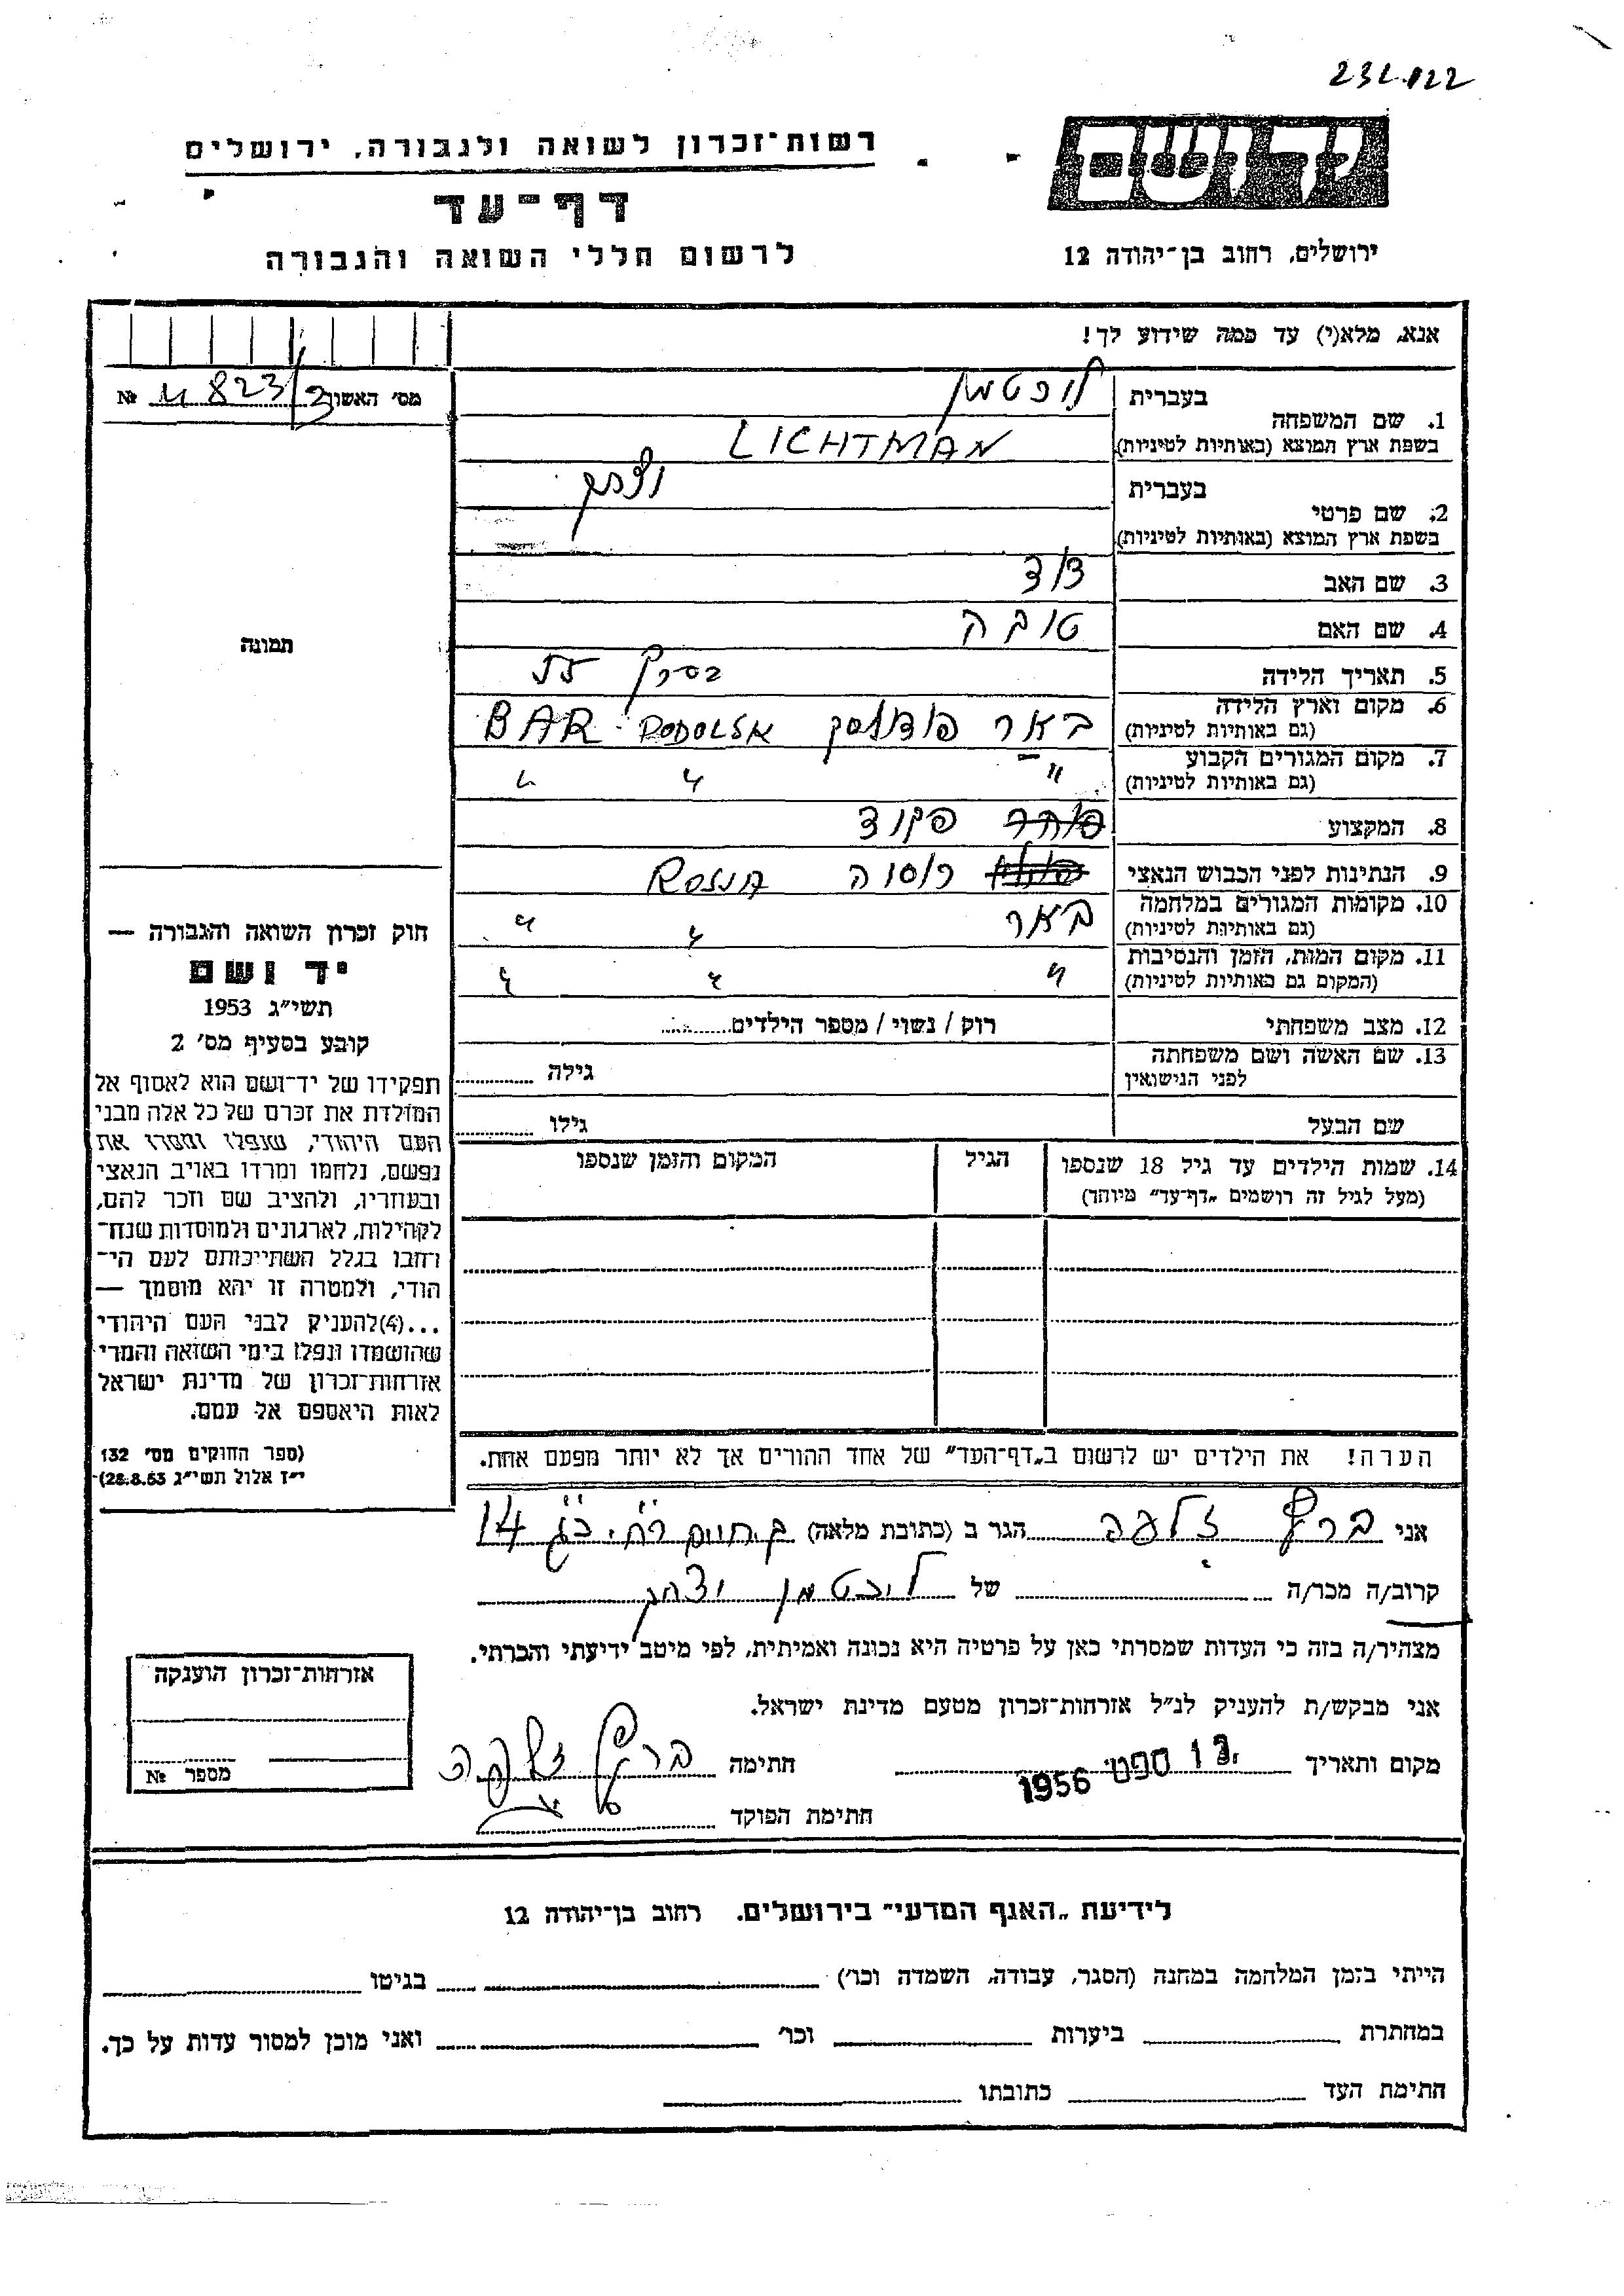 232022
יד ושם
רשות־זכרון לשואה ולגבורה, ירושלים
דף־עד
לרשום חללי השואה והגבורה
ירושלים, רחוב בן־יהודה 12
אנא, מלא(י) עד כמה שידוע לך!
מס׳ האשור 823/3 №
1. שם המשפחה
בעברית ליכטמן
בשפת ארץ המוצא (באותיות לטיניות) LICHTMAN
2. שם פרטי
בעברית יצחק
בשפת ארץ המוצא (באותיות לטיניות)
3. שם האב דוד
4. שם האם טובה
5. תאריך הלידה בערך 55
6. מקום וארץ הלידה באר פודולסק BAR PODOLSK
(גם באותיות לטיניות)
7. מקום המגורים הקבוע " " "
(גם באותיות לטיניות)
8. המקצוע סוחר פקוד
9. הנתינות לפני הכבוש הנאצי רוסיה
10. מקומות המגורים במלחמה באר " "
(גם באותיות לטיניות)
11. מקום המות, הזמן והנסיבות " " "
(המקום גם באותיות לטיניות)
12. מצב משפחתי רוק / נשוי / מספר הילדים
13. שם האשה ושם משפחתה גילה
לפני הנישואין
שם הבעל גילו
14. שמות הילדים עד גיל 18 שנספו הגיל המקום והזמן שנספו
(מעל לגיל זה רושמים „דף־עד״ מיוחד)
תמונה
חוק זכרון השואה והגבורה —
יד ושם
תשי״ג 1953
קובע בסעיף מס׳ 2
תפקידו של יד־ושם הוא לאסוף אל
המולדת את זכרם של כל אלה מבני
העם היהודי, שנפלו ומסרו את
נפשם, נלחמו ומרדו באויב הנאצי
ובעוזריו, ולהציב שם וזכר להם,
לקהילות, לארגונים ולמוסדות שנח־
רחבו בגלל השתייכותם לעם הי־
הודי, ולמטרה זו יהא מוסמך —
...(4)להעניק לבני העם היהודי
שהושמדו ונפלו בימי השואה והמרי
אזרחות־זכרון של מדינת ישראל
לאות היאספם אל עמם.
(ספר החוקים מס׳ 132
י״ז אלול תשי״ג 28.8.53)
הערה! את הילדים יש לרשום ב„דף־העד״ של אחד ההורים אך לא יותר מפעם אחת.
אני הגר ב (כתובת מלאה) 14
קרוב/ה מכר/ה של ליכטמן יצחק
מצהיר/ה בזה כי העדות שמסרתי כאן על פרטיה היא נכונה ואמיתית, לפי מיטב ידיעתי והכרתי.
אני מבקש/ת להעניק לנ״ל אזרחות־זכרון מטעם מדינת ישראל.
מקום ותאריך ספט׳ 1956 חתימה
חתימת הפוקד
אזרחות־זכרון הוענקה
מספר №
לידיעת „האגף המדעי״ בירושלים. רחוב בן־יהודה 12
הייתי בזמן המלחמה במחנה (הסגר, עבודה, השמדה וכו׳) בגיטו
במחתרת ביערות וכו׳ ואני מוכן למסור עדות על כך.
חתימת העד כתובתו